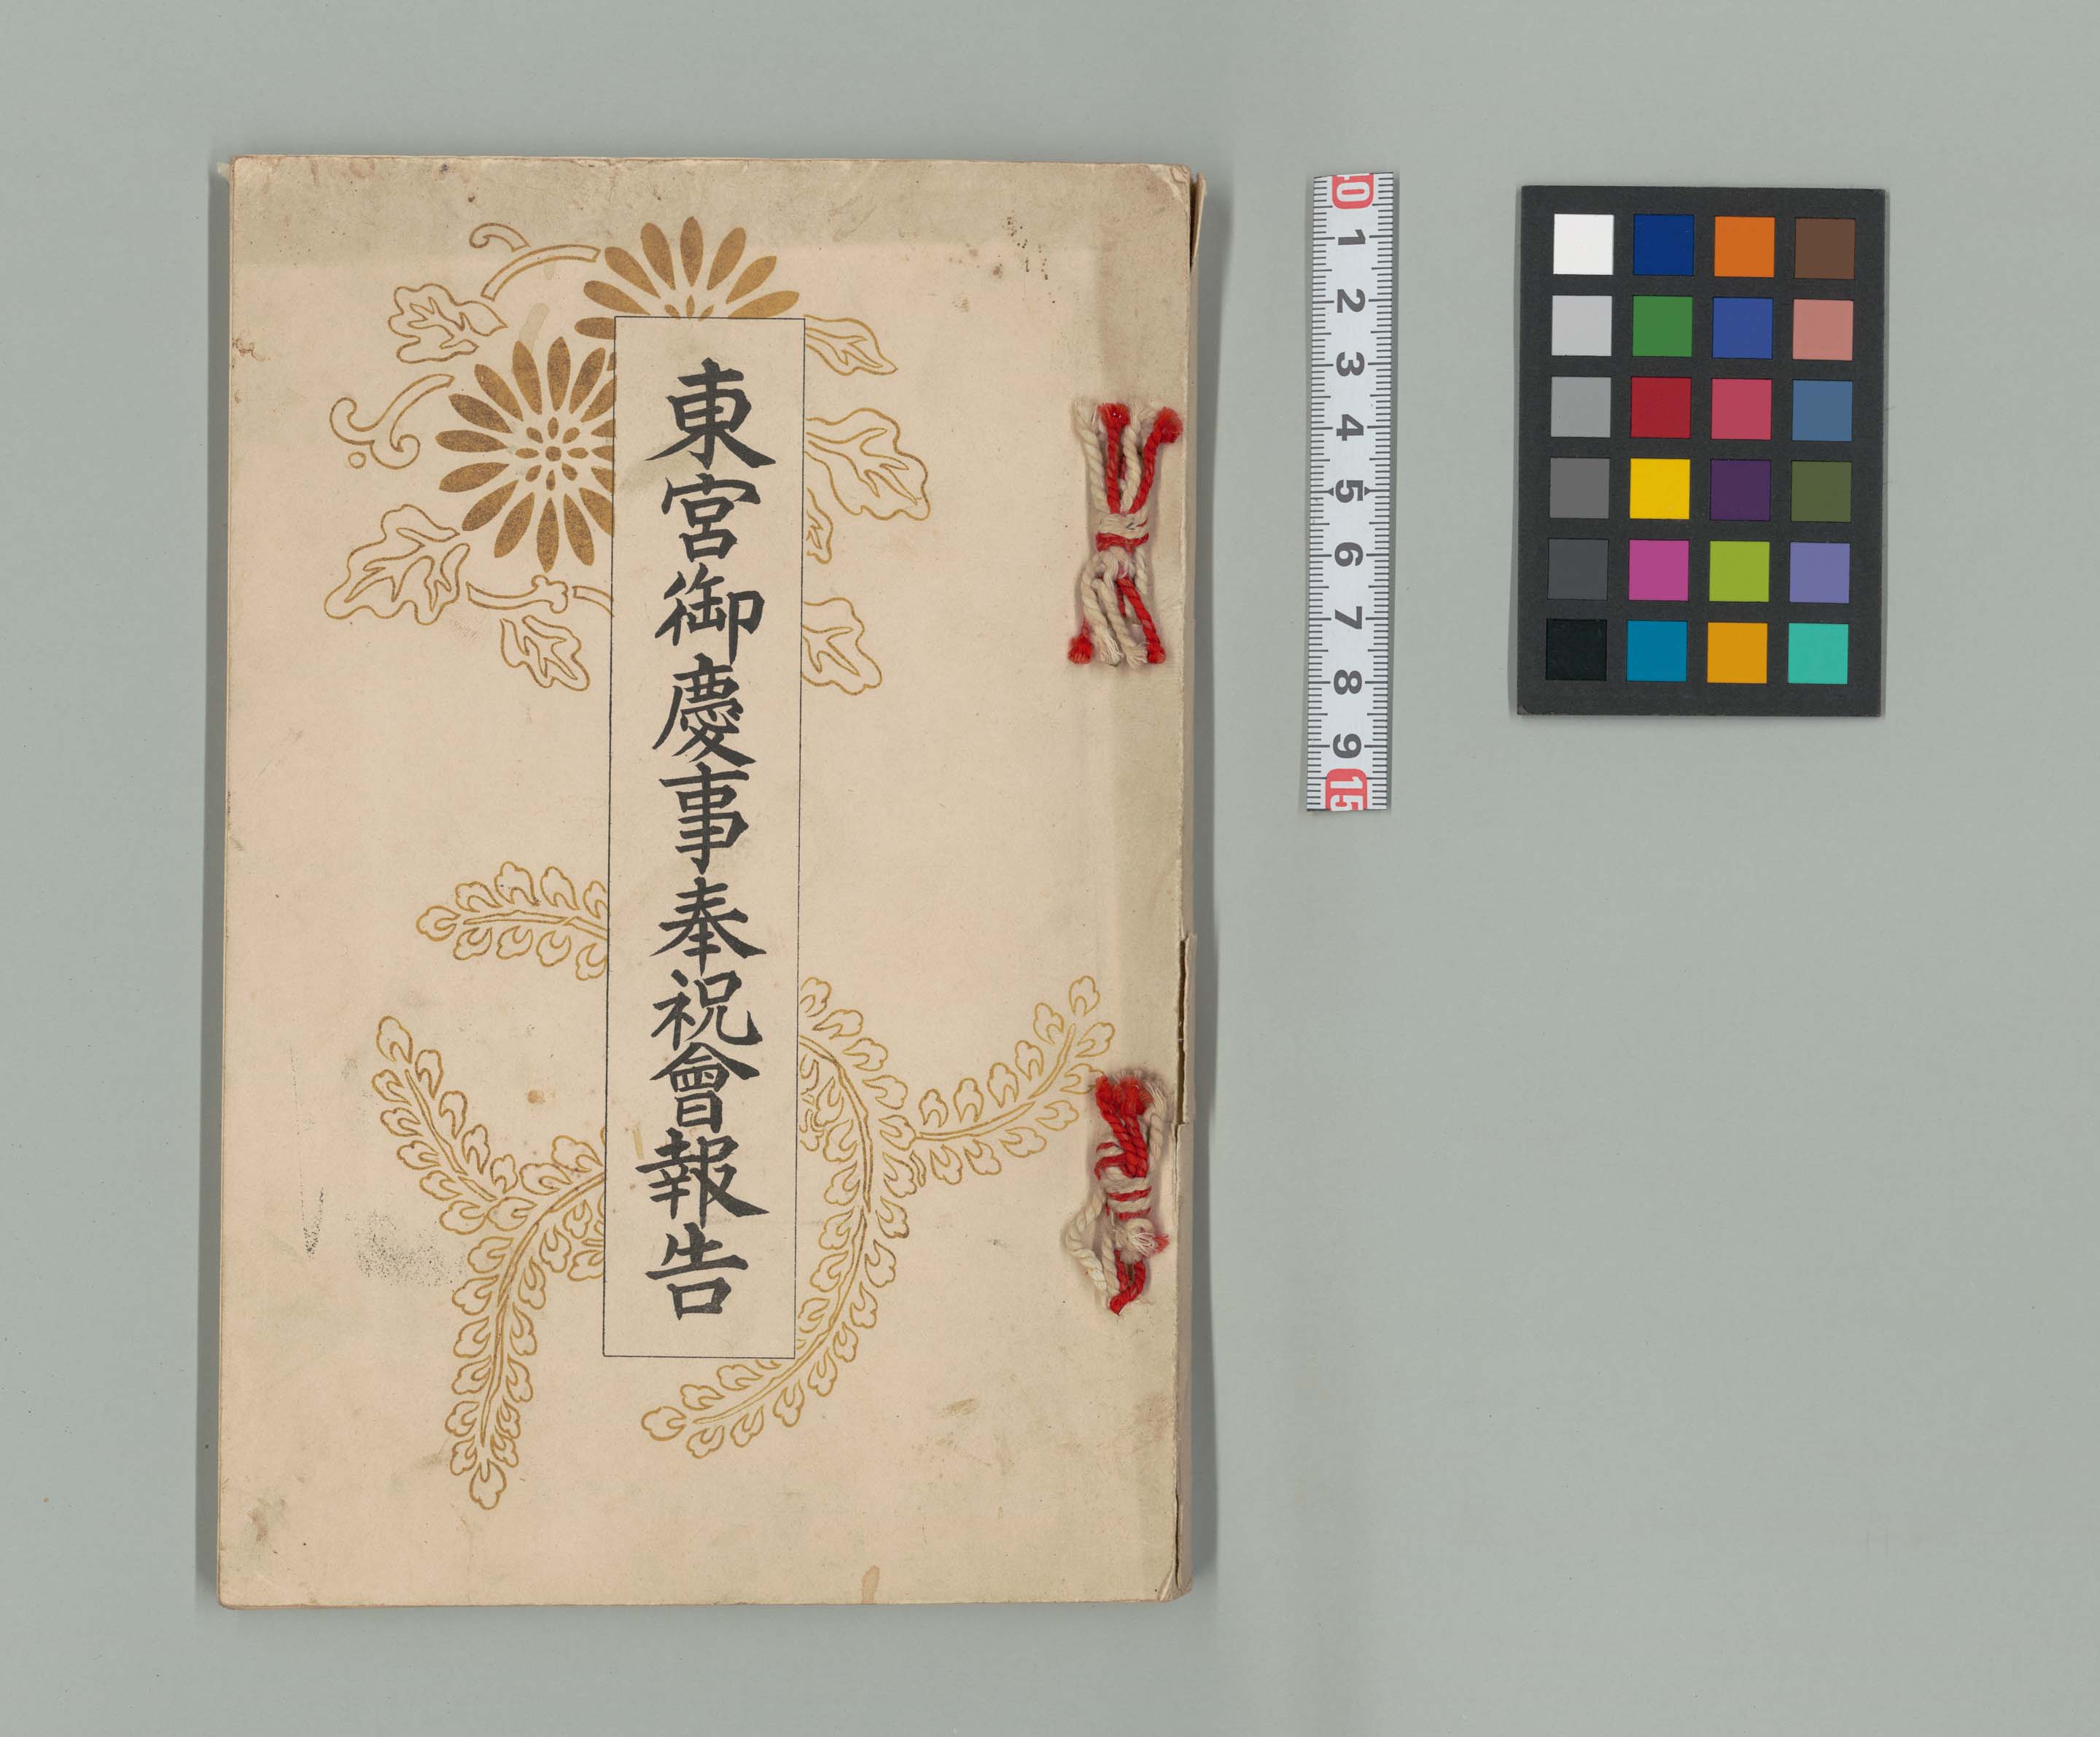 東宮御慶事奉祝會報告
10
1
2
3
4
5
6
7
8
9
15